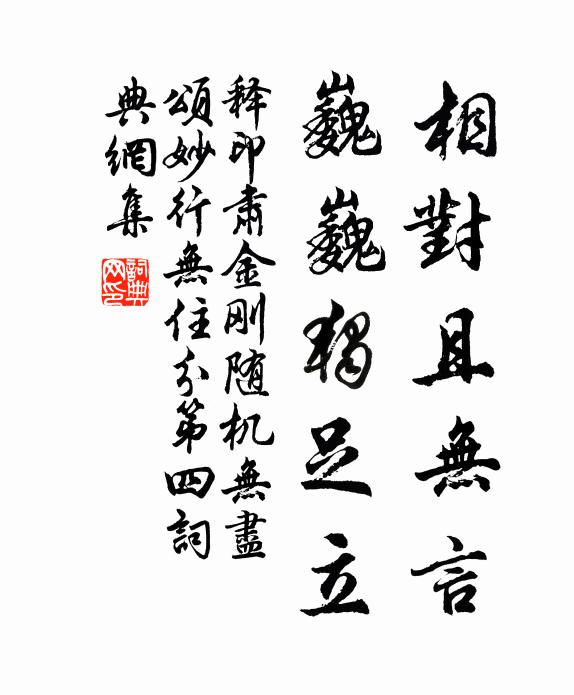 相對且無言
巍巍獨足立
释印肃金刚随机無盡
頌妙行無住分第四詞
典網集
詞典网印